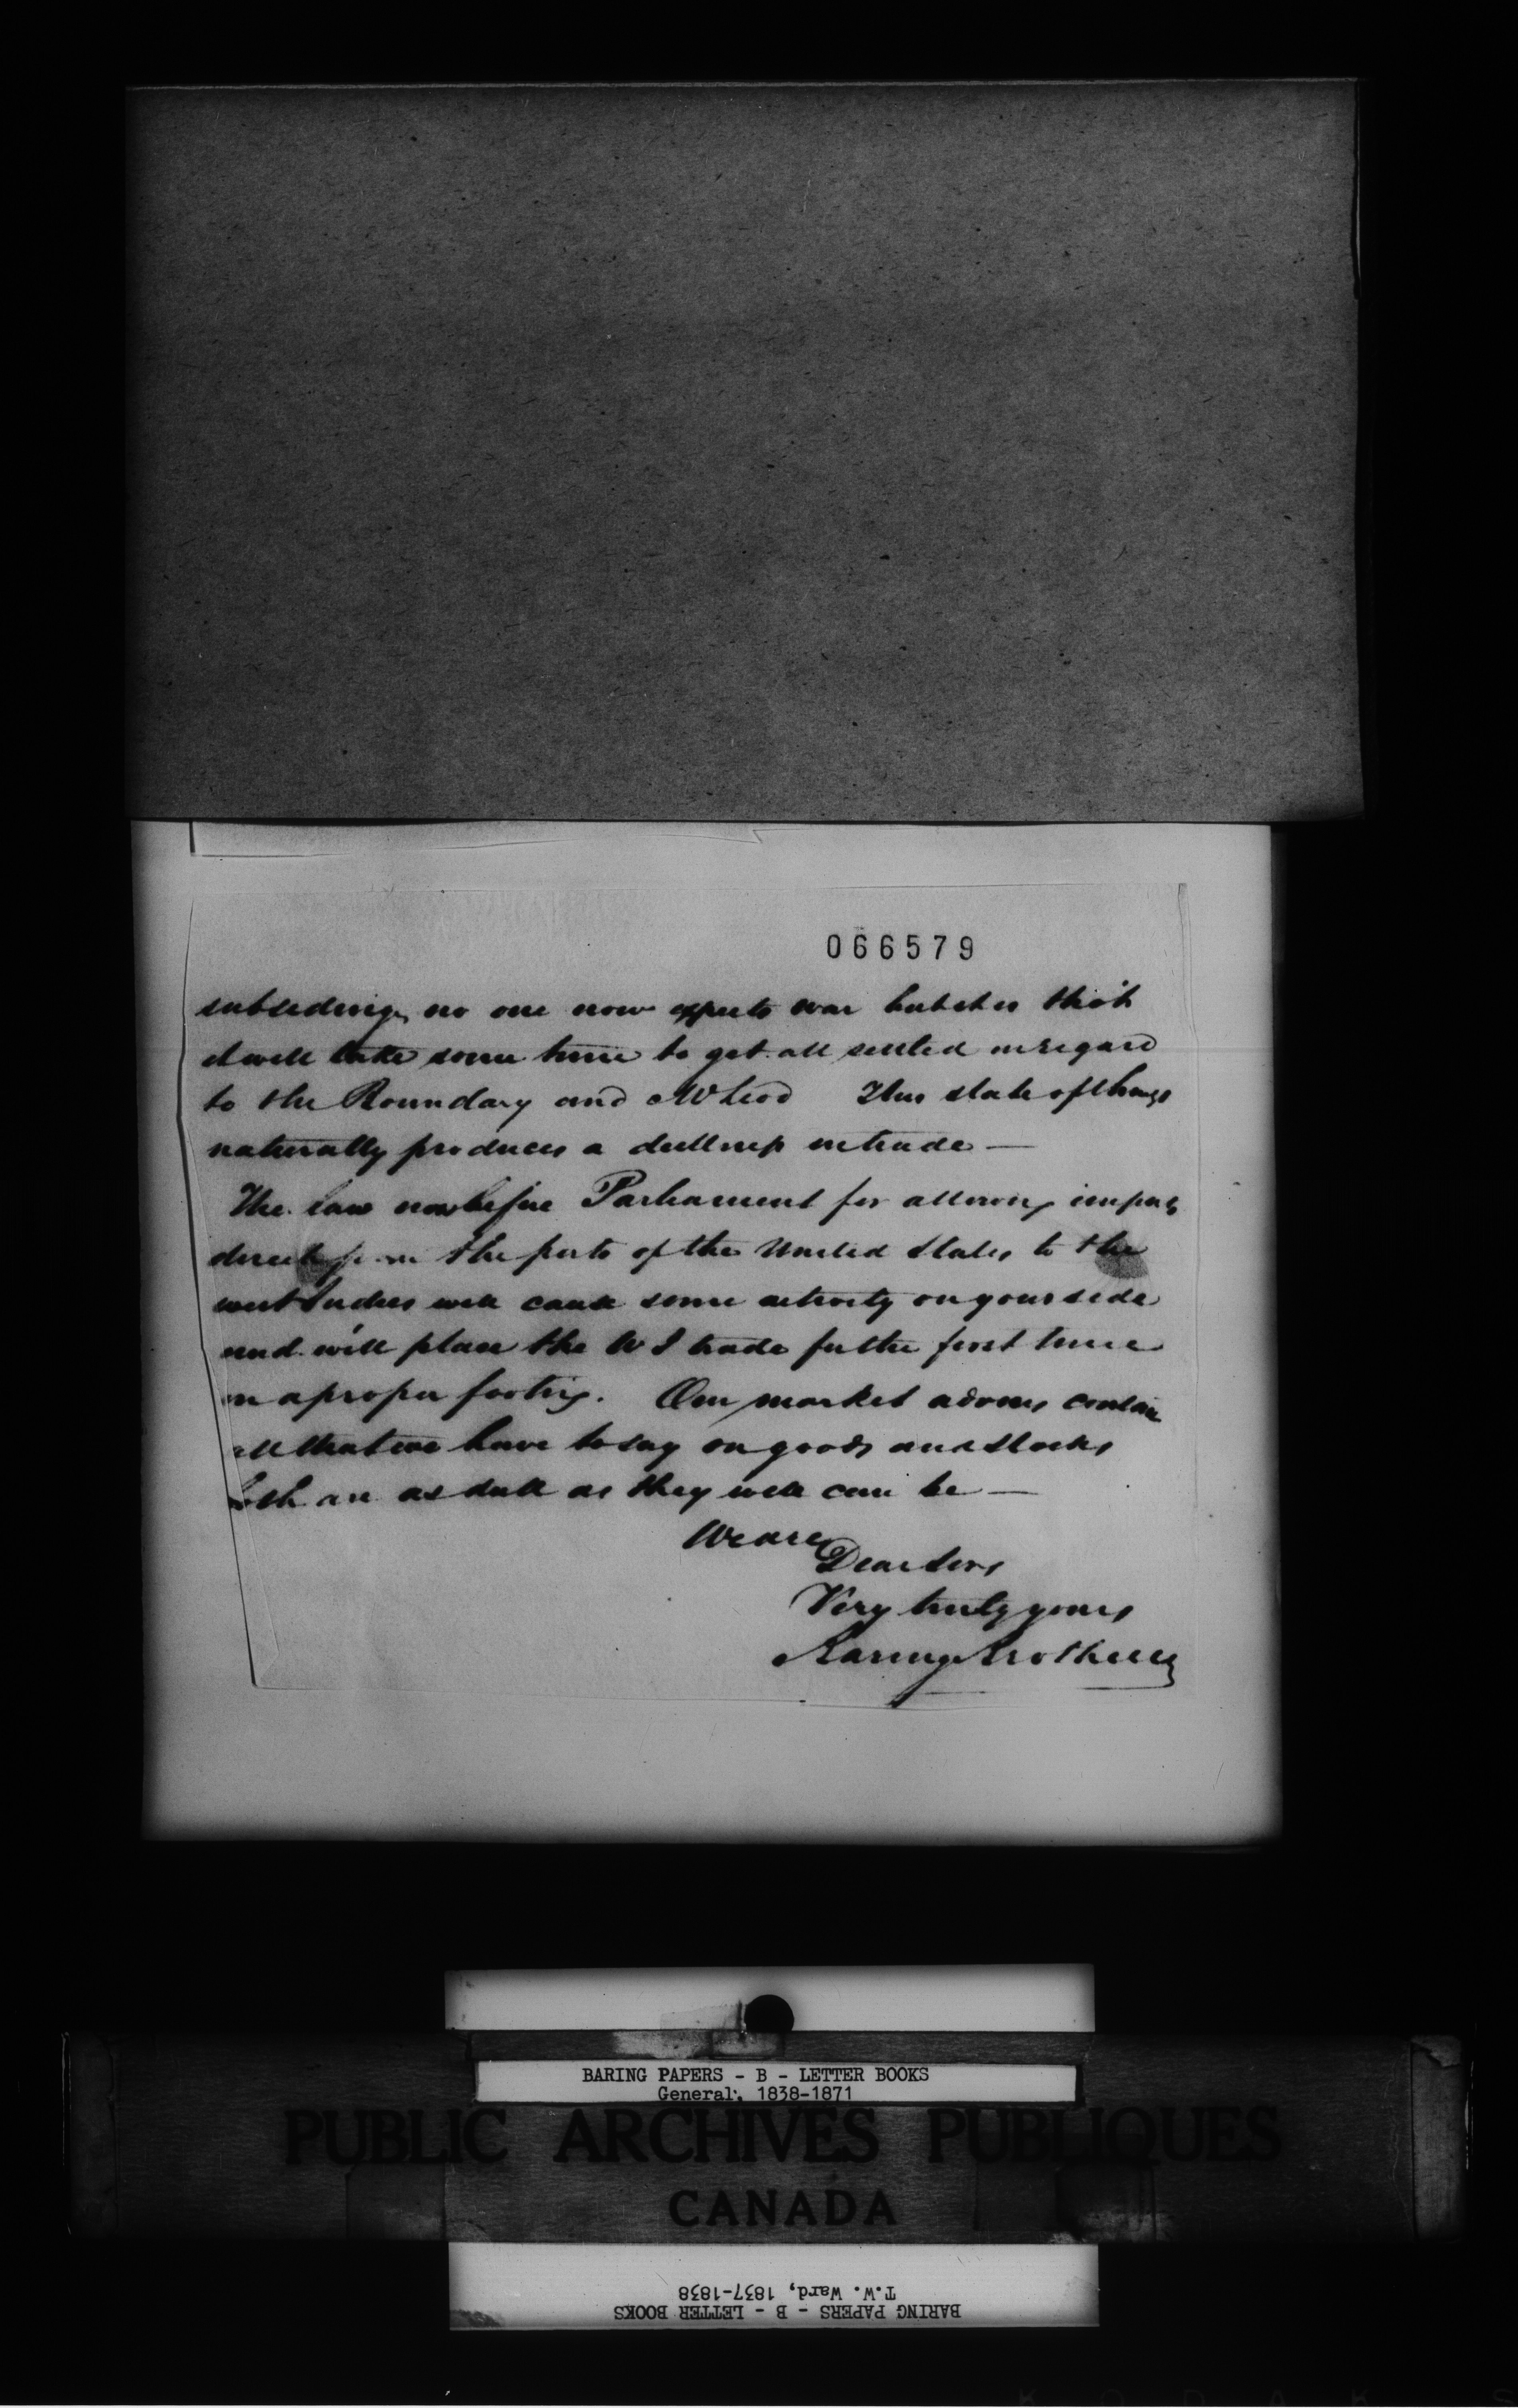 066579
subsiding, no one now expects war but it is tho't
it will take some time to get all settled in regard
to the Boundary and McLeod This state of things
naturally produces a dullness in trade —
The law now before Parliament for allowing imports
direct from the ports of the United States to the
West Indies will cause some activity on your side
and will place the W I trade for the first time
on a proper footing. Our market advices contain
all that we have to say on goods and stocks
both are as dull as they well can be —
We are
Dear Sirs
Very truly yours
Baring Brothers
BARING PAPERS - B - LETTER BOOKS
General, 1838-1871
PUBLIC ARCHIVES PUBLIQUES
CANADA
T.W. Ward, 1837-1838
BARING PAPERS - B - LETTER BOOKS